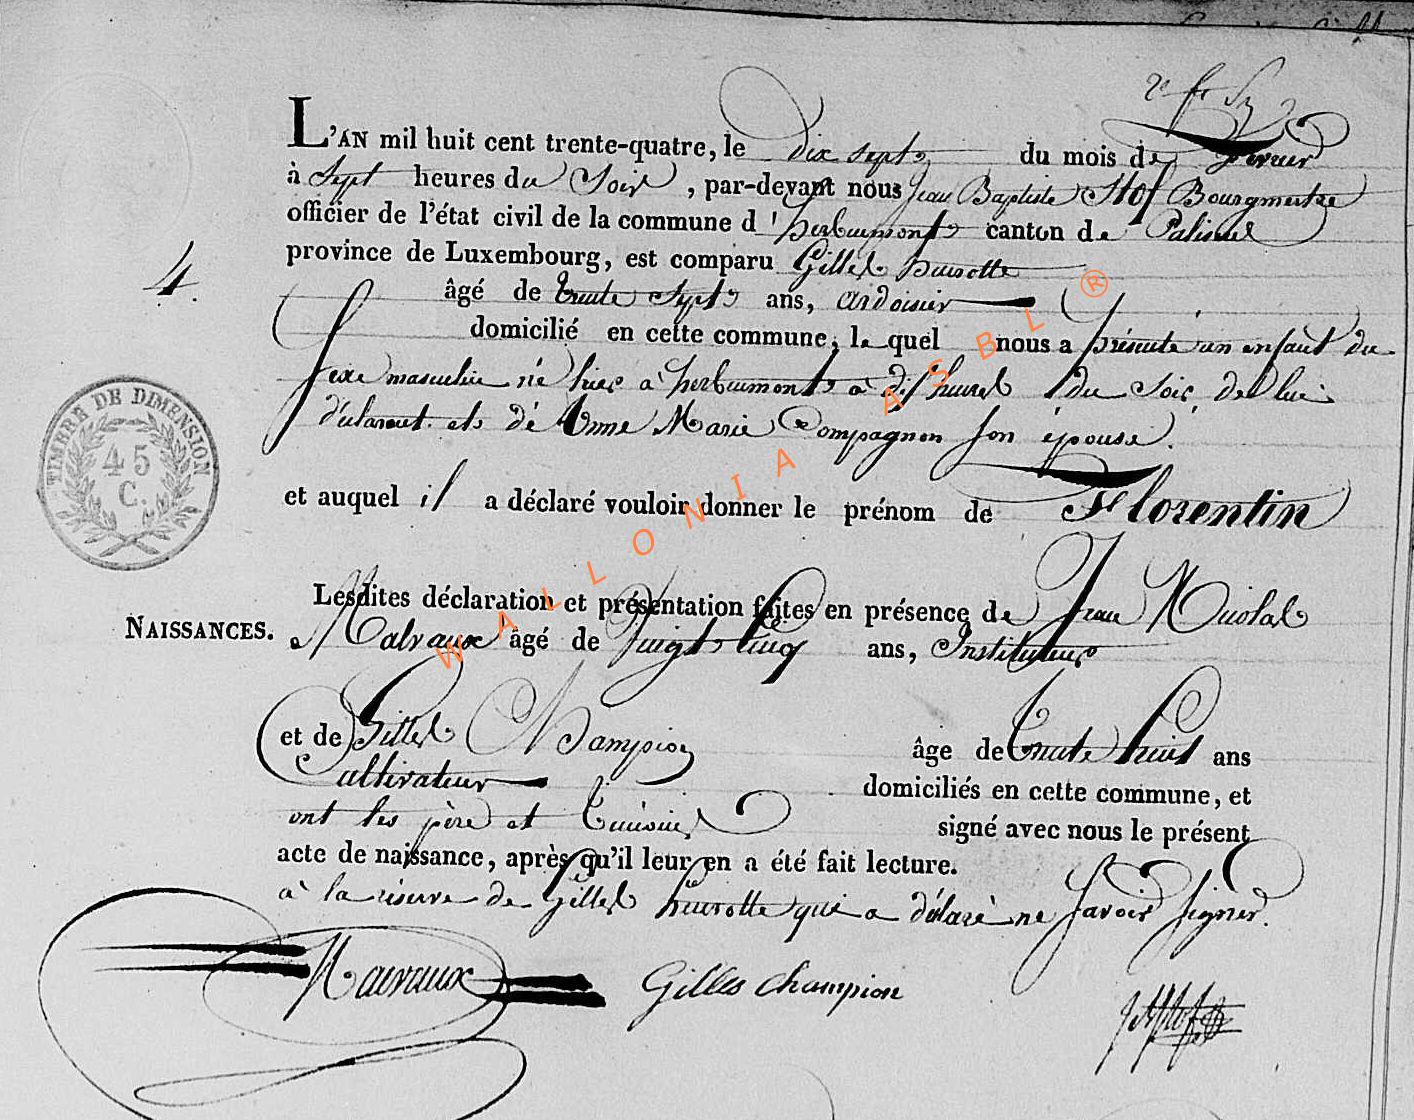 L'AN mil huit cent trente-quatre, le dix sept du mois de fevrier
à Sept heures du Soir, par-devant nous Jean Baptiste Hof Bourgmestre
officier de l'état civil de la commune d'herbeumont canton de Paliseul
province de Luxembourg, est comparu Gilles huirotte
4.
âgé de trente Sept ans, ardoisier
domicilié en cette commune, le quel nous a présenté un enfant du
Sexe masculin né hier à herbeumont à dix heures du Soir, de lui
déclarant et de Anne Marie Compagnon Son épouse.
TIMBRE DE DIMENSION
45
C.
et auquel il a déclaré vouloir donner le prénom de Florentin
Lesdites déclaration et présentation faites en présence de Jean Nicolas
NAISSANCES.
Malvaux âgé de Vingt Cinq ans, Instituteur
et de Gilles Champion âge de trente huit ans
Cultivateur domiciliés en cette commune, et
ont les père et témoins signé avec nous le présent
acte de naissance, après qu'il leur en a été fait lecture.
à la réserve de Gilles huirotte qui a déclaré ne Savoir Signer.
Malvaux Gilles Champion
WALLONIA ASBL ®